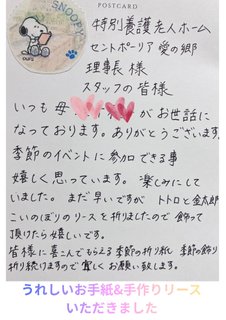 POSTCARD
SNOOPY
特別養護老人ホーム
セントポーリア愛の郷
理事長様
スタッフの皆様
いつも母 がお世話に
なっております。ありがとうございます。
季節のイベントに参加できる事
嬉しく思っています。楽しみにして
いました。まだ早いですが トトロと金太郎
こいのぼりのリースを折りましたので 飾って
頂けたら嬉しいです。
皆様に喜こんでもらえる 季節の折り紙 季節の飾り
折り続けますので宜しくお願い致します。
うれしいお手紙&手作りリース
いただきました